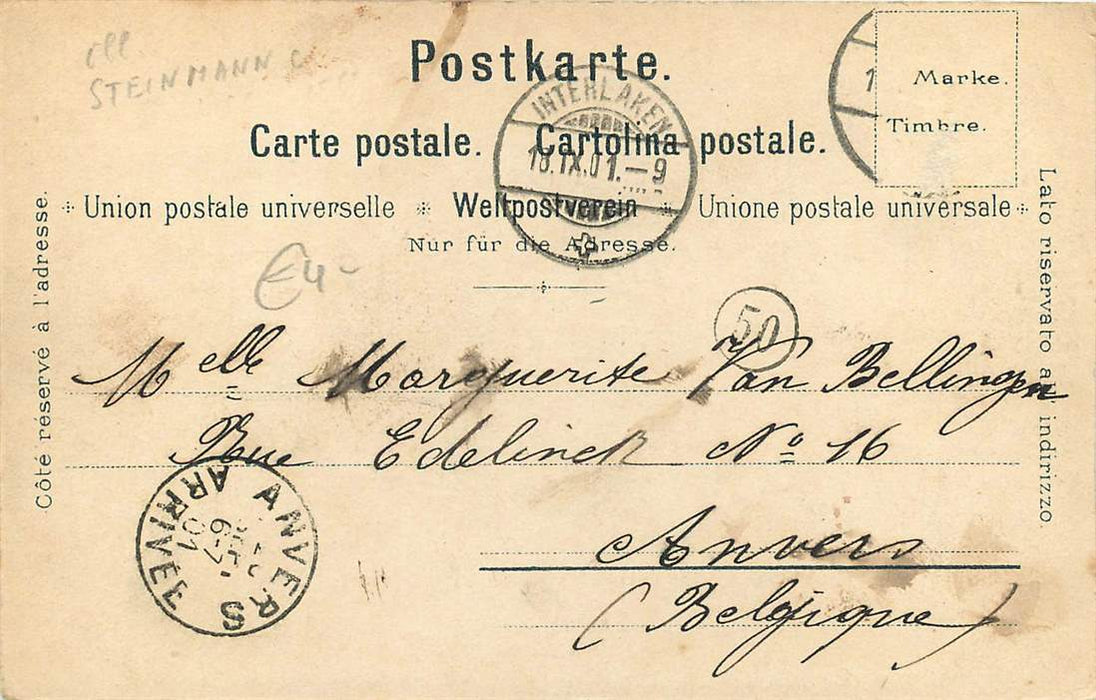 ill
STEINMANN
Postkarte.
Marke.
Timbre.
Carte postale. Cartolina postale.
INTERLAKEN
18.IX.01.–9
Union postale universelle * Weltpostverein * Unione postale universale
Nur für die Adresse.
Côté réservé à l'adresse.
Lato riservato all' indirizzo.
€4-
50
Melle Marguerite Van Bellingen
Rue Edelinck No 16
Anvers
(Belgique)
ANVERS
ARRIVÉE
6-7
01